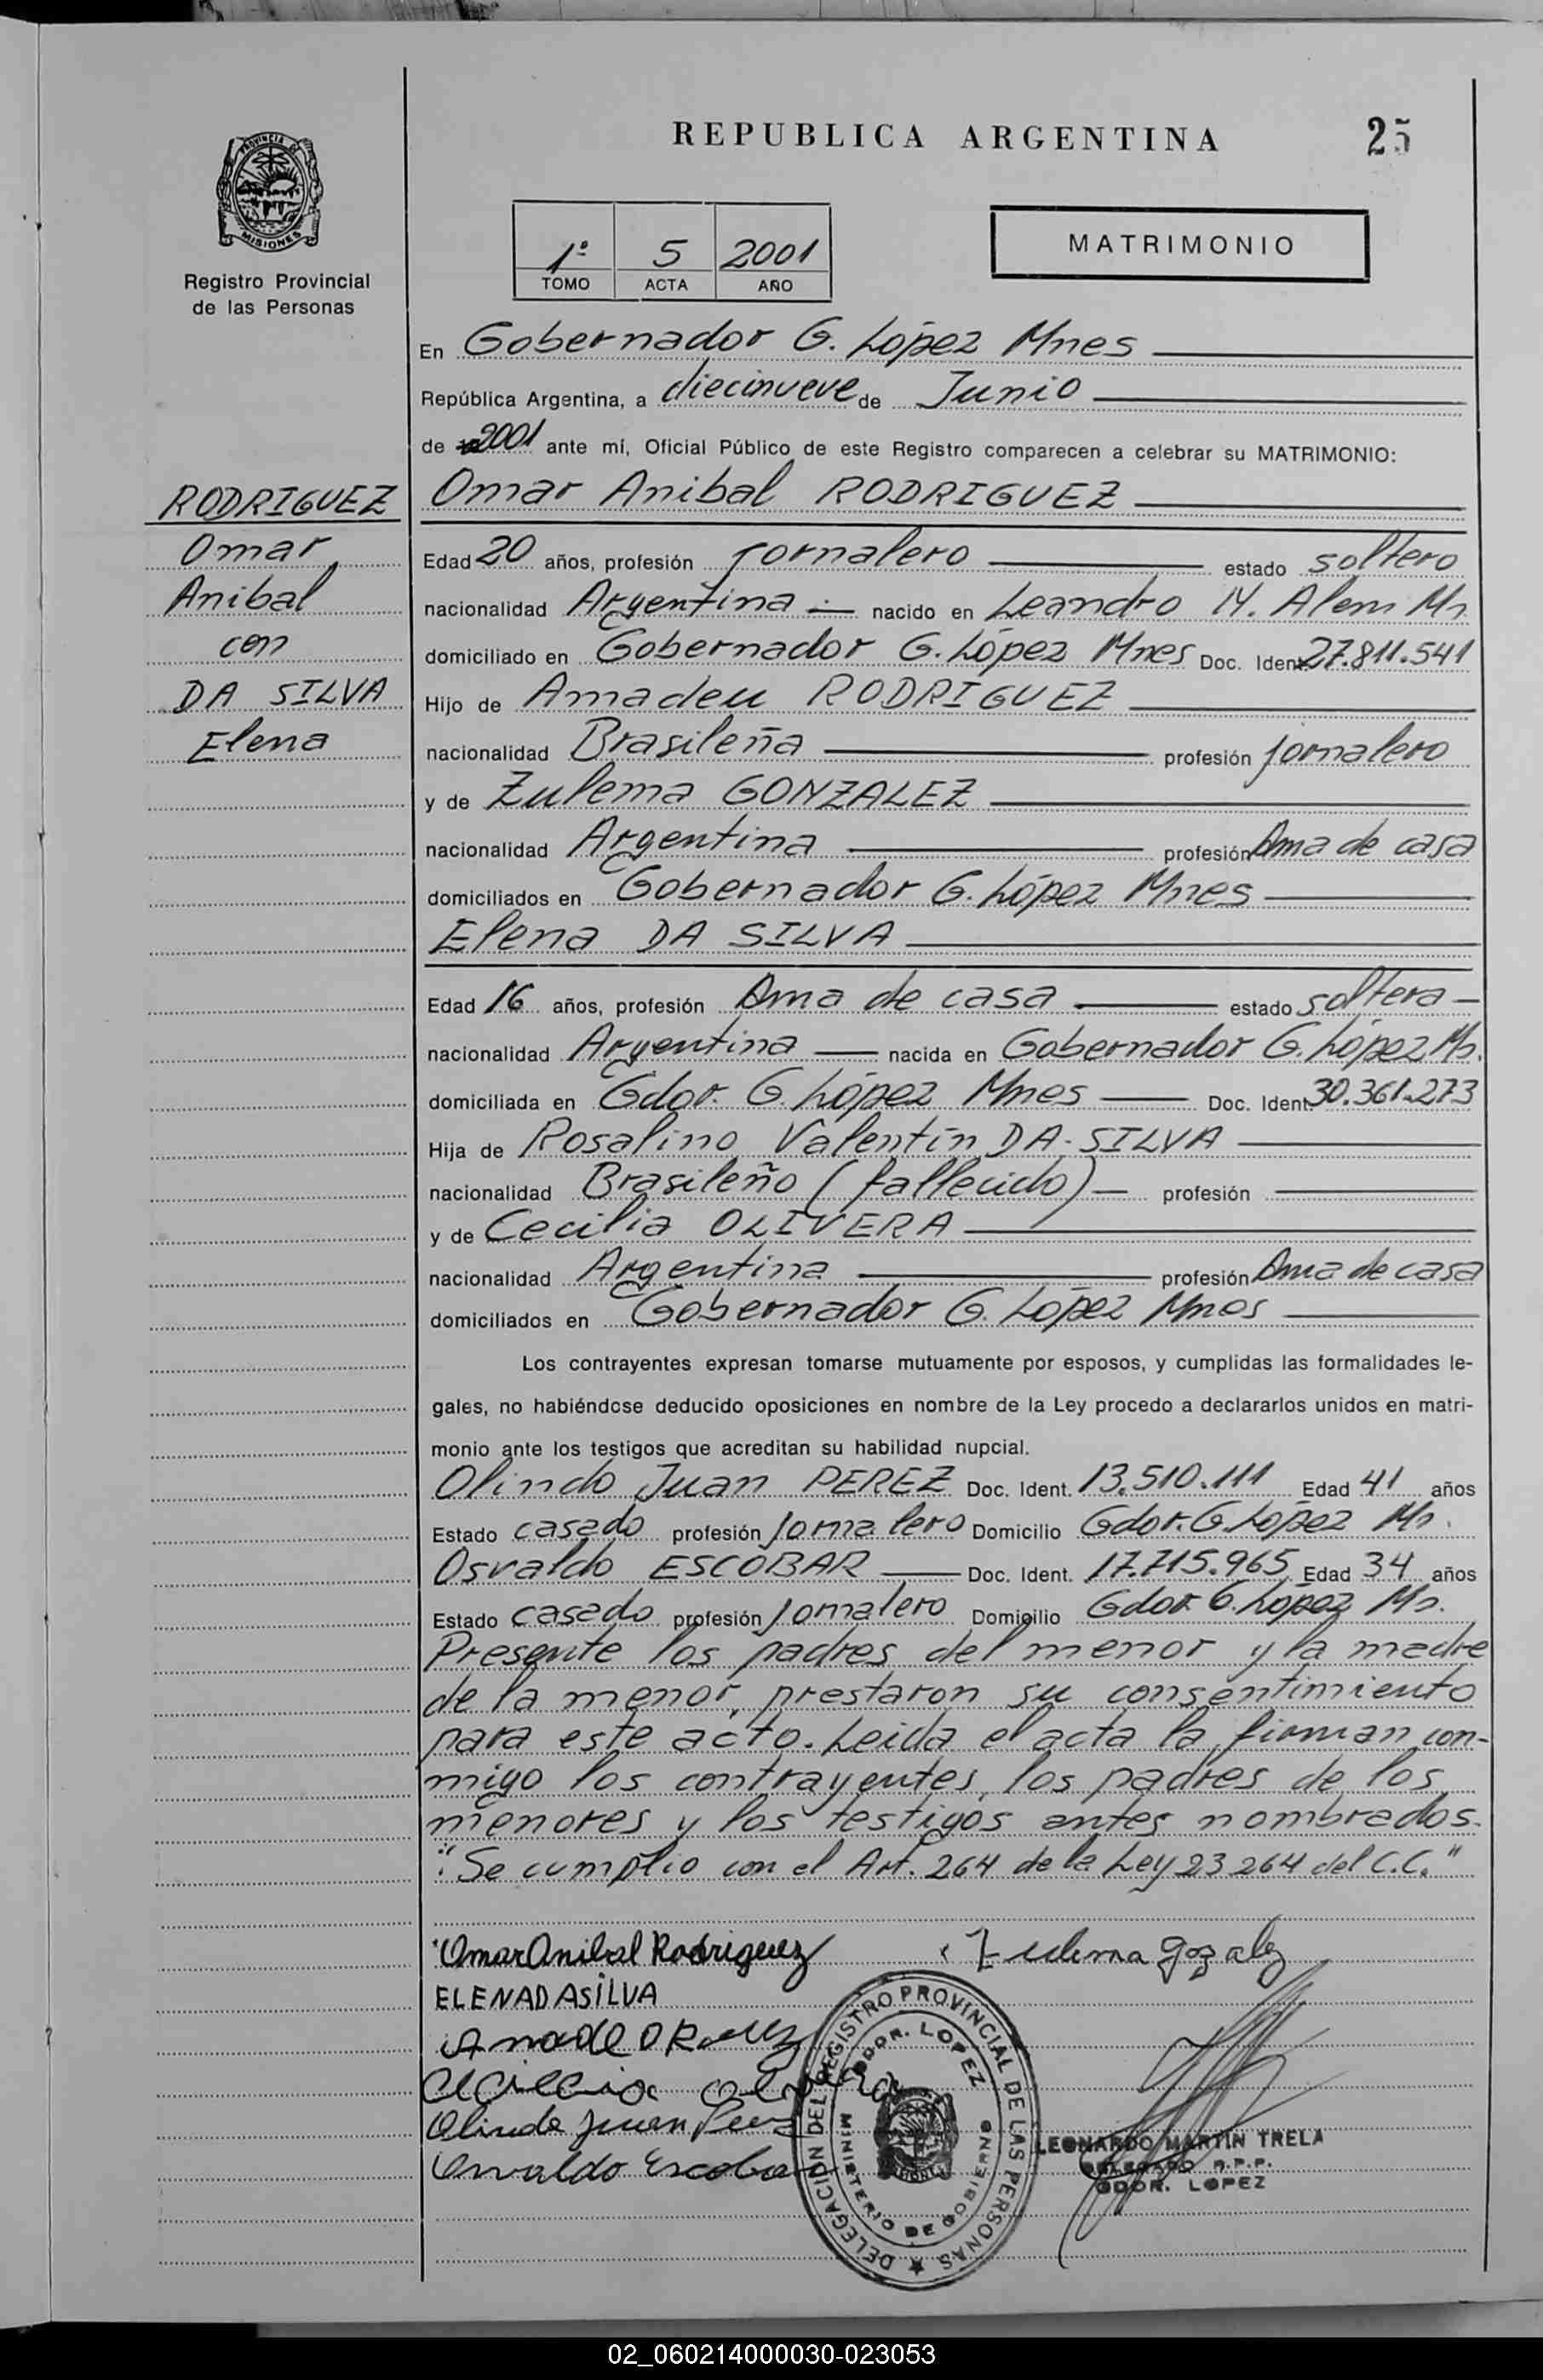 REPUBLICA ARGENTINA
25
PROVINCIA DE
MISIONES
Registro Provincial
de las Personas
1º 5 2001
TOMO ACTA AÑO
MATRIMONIO
En Gobernador G. López Mnes
República Argentina, a diecinueve de Junio
de 2001 ante mí, Oficial Público de este Registro comparecen a celebrar su MATRIMONIO:
RODRIGUEZ
Omar
Anibal
con
DA SILVA
Elena
Omar Anibal RODRIGUEZ
Edad 20 años, profesión Jornalero estado soltero
nacionalidad Argentina nacido en Leandro N. Alem Mn
domiciliado en Gobernador G. López Mnes Doc. Ident. 27.811.541
Hijo de Amadeu RODRIGUEZ
nacionalidad Brasileña profesión jornalero
y de Zulema GONZALEZ
nacionalidad Argentina profesión Ama de casa
domiciliados en Gobernador G. López Mnes
Elena DA SILVA
Edad 16 años, profesión Ama de casa estado soltera
nacionalidad Argentina nacida en Gobernador G. López Mn.
domiciliada en Gdor. G. López Mnes Doc. Ident. 30.361.273
Hija de Rosalino Valentín DA SILVA
nacionalidad Brasileño (fallecido) profesión
y de Cecilia OLIVERA
nacionalidad Argentina profesión Ama de casa
domiciliados en Gobernador G. López Mnes
Los contrayentes expresan tomarse mutuamente por esposos, y cumplidas las formalidades le-
gales, no habiéndose deducido oposiciones en nombre de la Ley procedo a declararlos unidos en matri-
monio ante los testigos que acreditan su habilidad nupcial.
Olindo Juan PEREZ Doc. Ident. 13.510.111 Edad 41 años
Estado casado profesión Jornalero Domicilio Gdor. G. López Mn.
Osvaldo ESCOBAR Doc. Ident. 17.715.965 Edad 34 años
Estado casado profesión Jornalero Domicilio Gdor. G. López Mn.
Presente los padres del menor y la madre
de la menor, prestaron su consentimiento
para este acto. Leida el acta la firman con-
migo los contrayentes, los padres de los
menores y los testigos antes nombrados.
"Se cumplio con el Art. 264 de la Ley 23264 del C.C."
Omar Anibal Rodriguez
Zulema gozalez
ELENA DA SILVA
Cecilia olivera
Olindo Juan Perez
Osvaldo Escobar
DELEGACIÓN DEL REGISTRO PROVINCIAL DE LAS PERSONAS
GDOR. LOPEZ
MINISTERIO DE GOBIERNO
LEONARDO MARTIN TRELA
DELEGADO R.P.P.
GDOR. LOPEZ
02_060214000030-023053